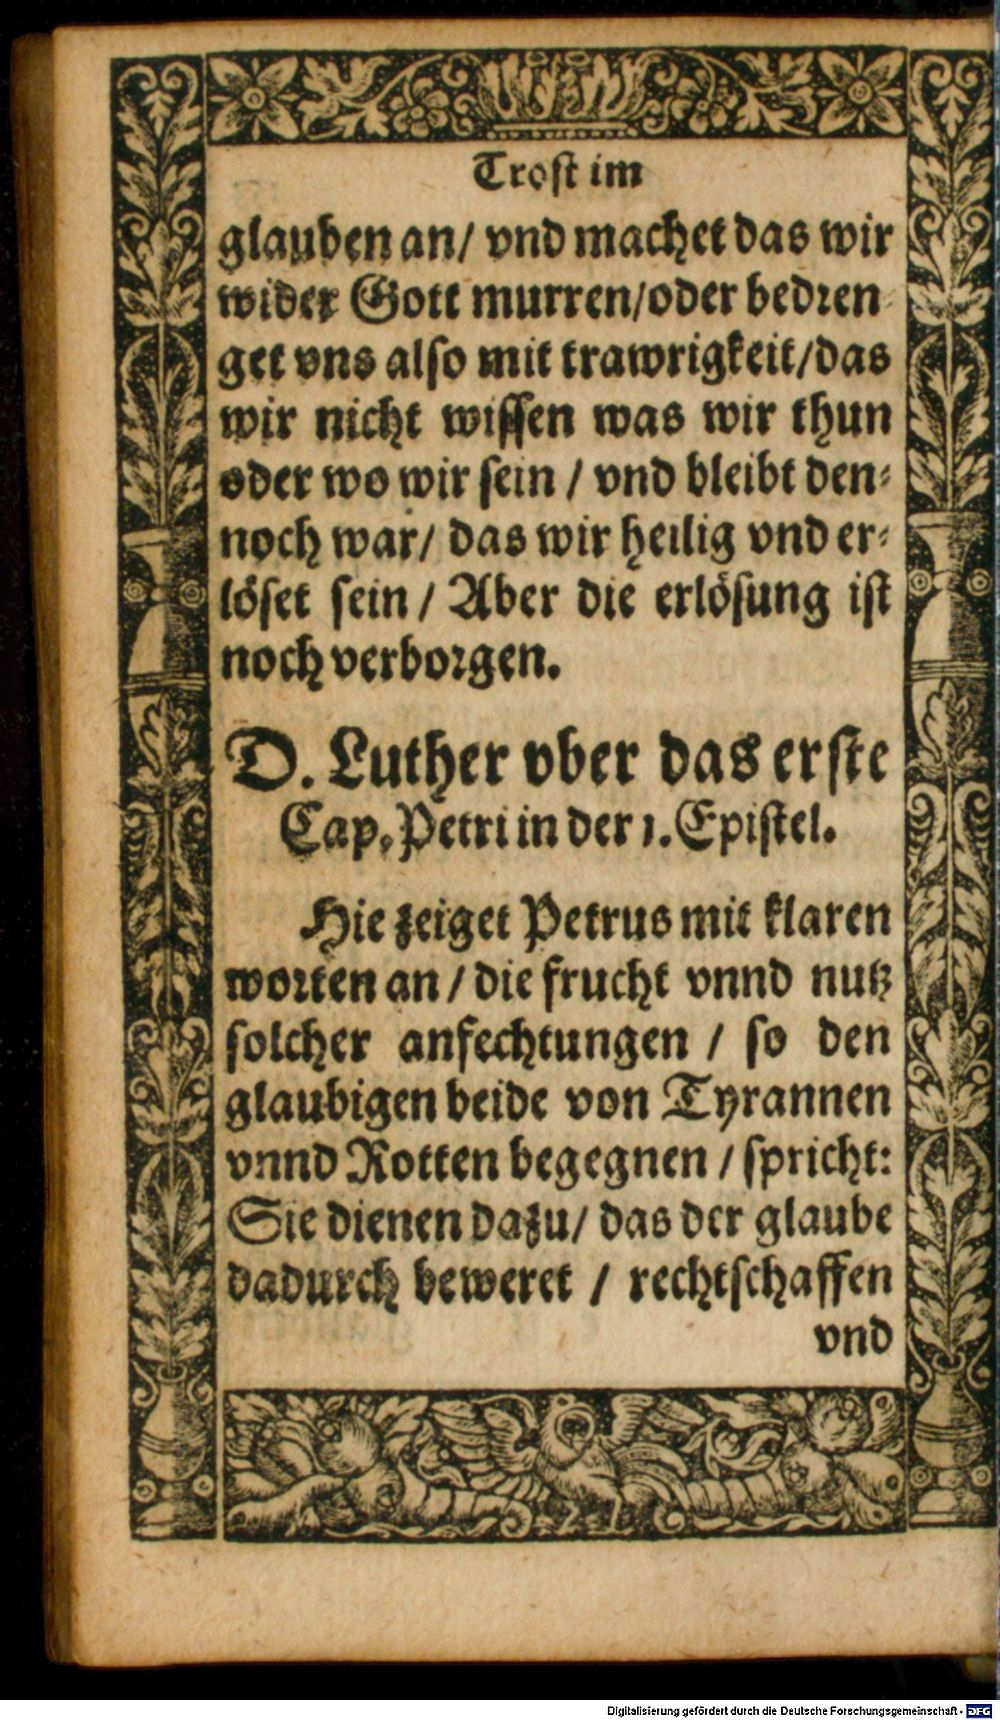 Trost im
glauben an/ vnd machet das wir
wider Gott murren/oder bedren-
get vns also mit trawrigkeit/das
wir nicht wissen was wir thun
oder wo wir sein / vnd bleibt den-
noch war/ das wir heilig vnd er-
löset sein / Aber die erlösung ist
noch verborgen.
D. Luther vber das erste
Cap. Petri in der 1. Epistel.
Hie zeiget Petrus mit klaren
worten an / die frucht vnnd nutz
solcher anfechtungen / so den
glaubigen beide von Tyrannen
vnnd Rotten begegnen / spricht:
Sie dienen dazu/ das der glaube
dadurch beweret / rechtschaffen
vnd
Digitalisierung gefördert durch die Deutsche Forschungsgemeinschaft - DFG